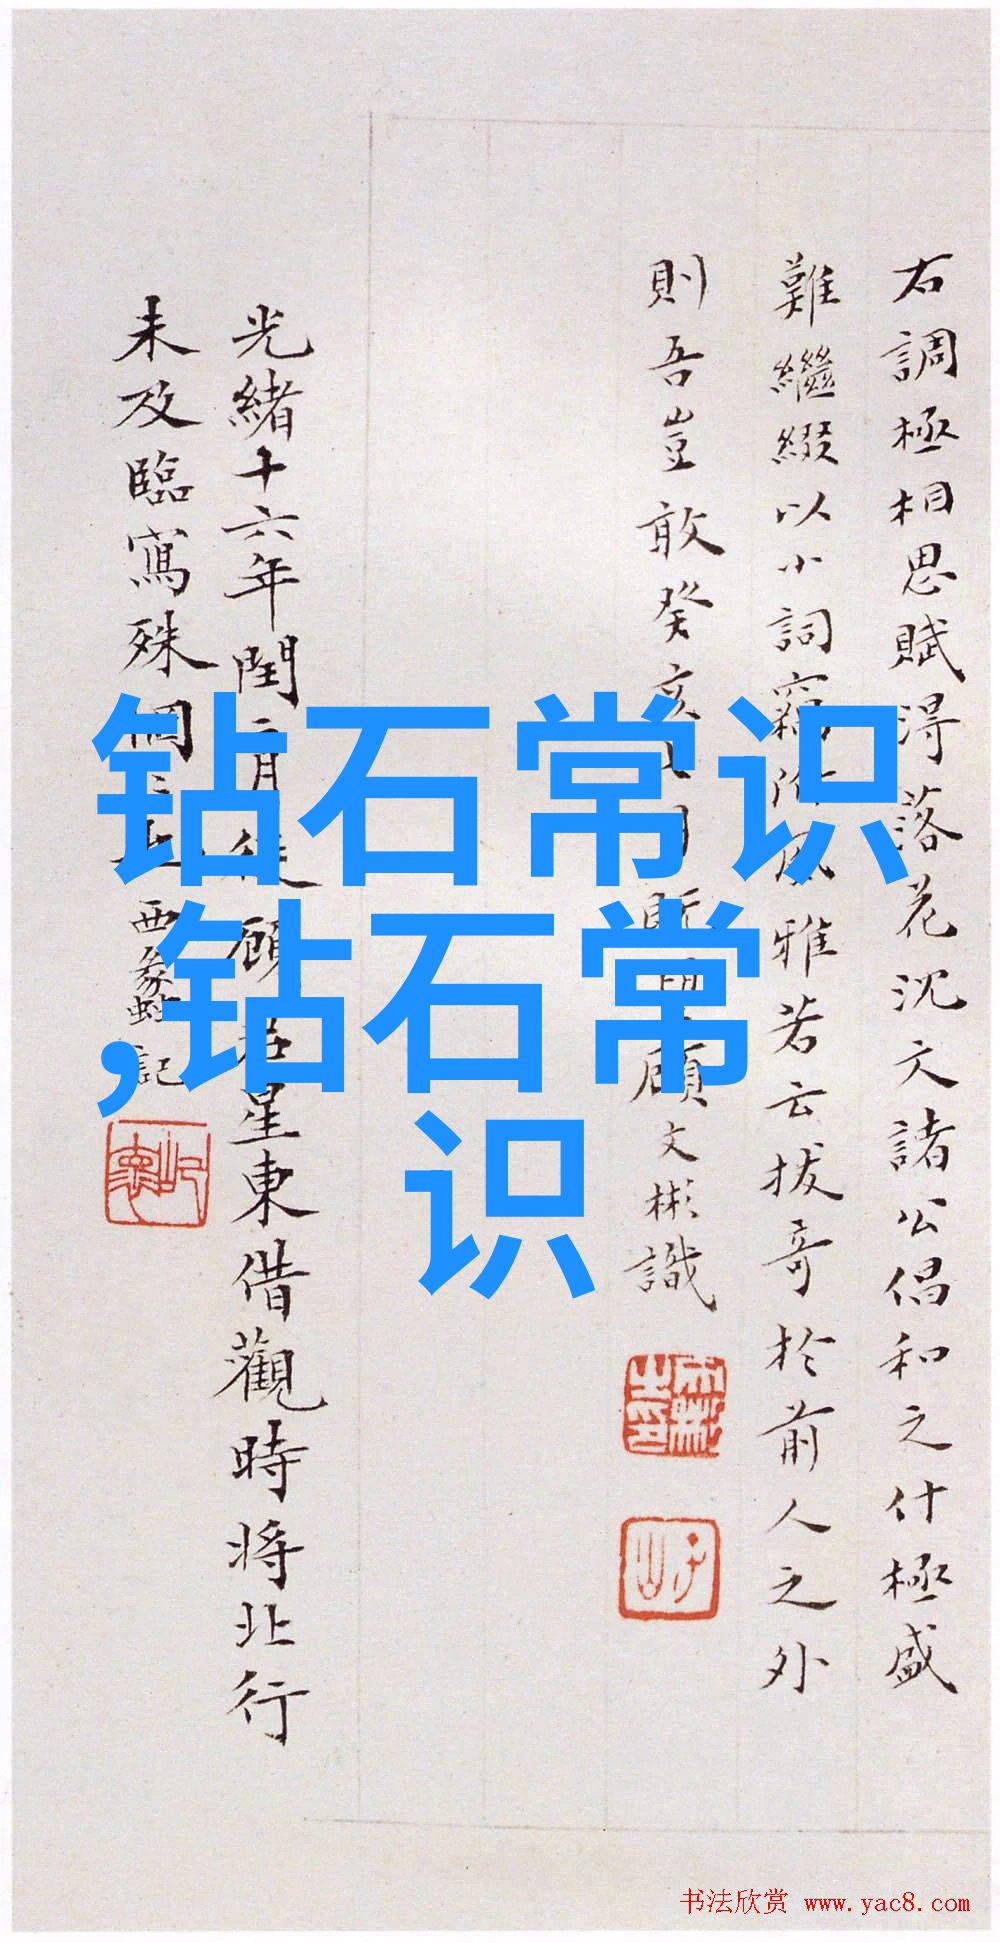 右調極相思賦得落花沈文諸公倡和之什極盛
難繼綴以小詞竊附風雅若云拔奇於前人之外
則吾豈敢癸亥七月既望顧文彬識
光緒十六年閏二月從顧君星東借觀時將北行
未及臨寫殊惘惘也西蠡記
钻石常识
,钻石常
识
书法欣赏 www.yac8.com